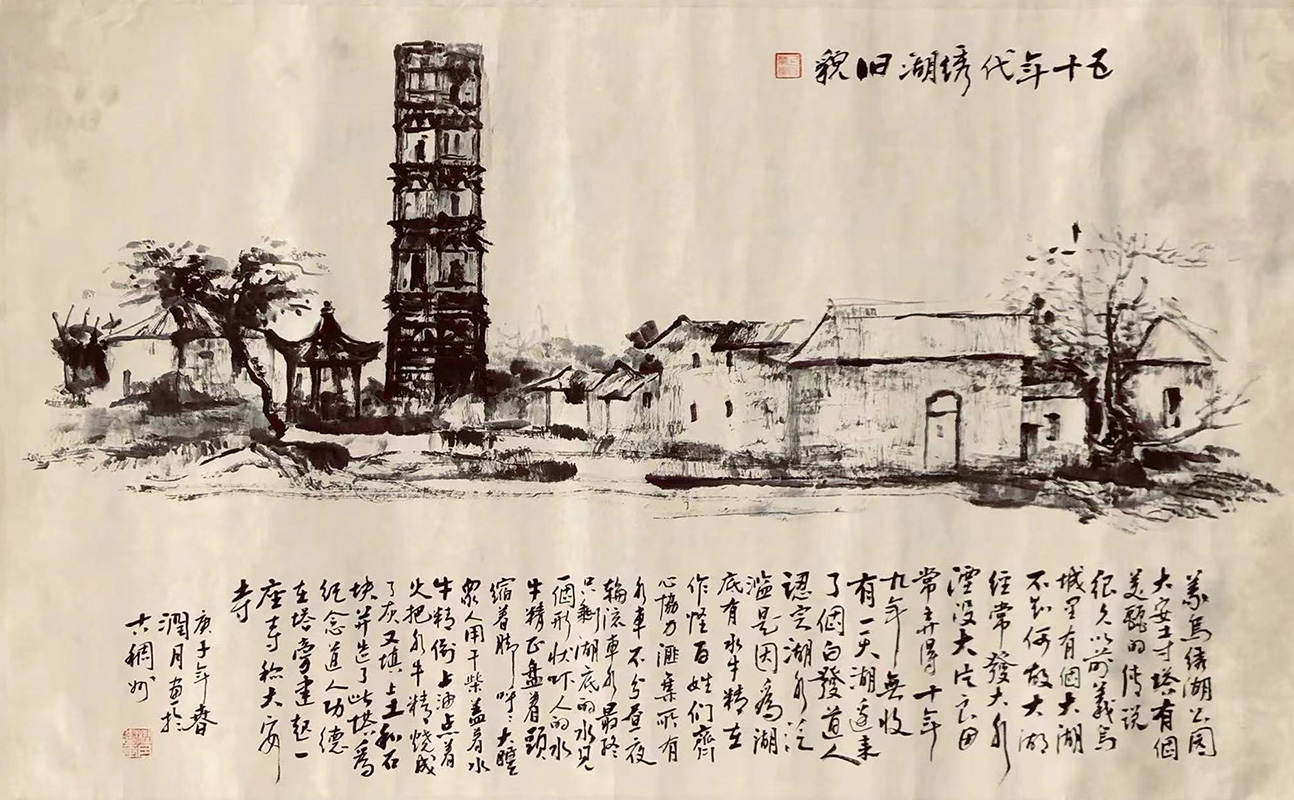 五十年代绣湖旧貌
義烏绣湖公园
大安寺塔有個
美麗的传说
很久以前義烏
城里有個大湖
不知何故大湖
经常發大水
湮没大片农田
常弄得十年
九年無收
有一天湖边来
了個白發道人
認定湖水泛
滥是因為湖
底有水牛精在
作怪百姓们齊
心協力滙集所有
水車不分昼夜
輪流車水最終
只剩湖底的水見
一個形状吓人的水
牛精正盘着頭
缩着脚呼々大睡
衆人用干柴盖着水
牛精倒上油点着
火把水牛精烧成
了灰又填上土和石
块并造了此塔為
纪念道人功德
在塔旁建起一
座寺称大安
寺
庚子年春
潤月画於
古稠州